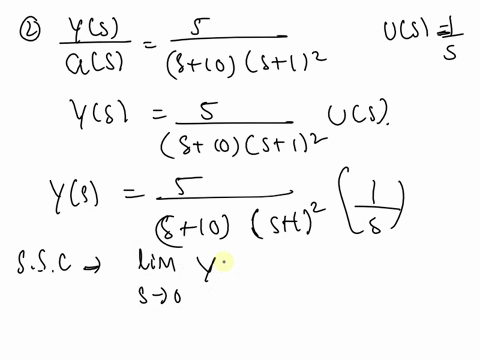 ② Y(s)/G(s) = 5/(s+10)(s+1)² U(s) = 1/s
Y(s) = 5/(s+10)(s+1)² U(s).
Y(s) = 5/(s+10)(s+1)² (1/s)
S.S.C → lim s→0 Y